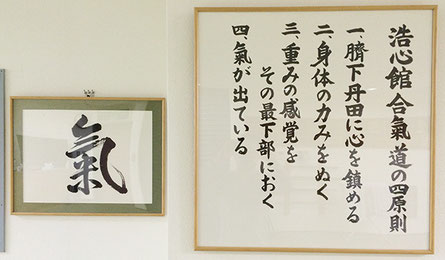 浩心館合氣道の四原則
一、臍下丹田に心を鎮める
二、身体の力みをぬく
三、重みの感覚を
その最下部におく
四、氣が出ている
氣